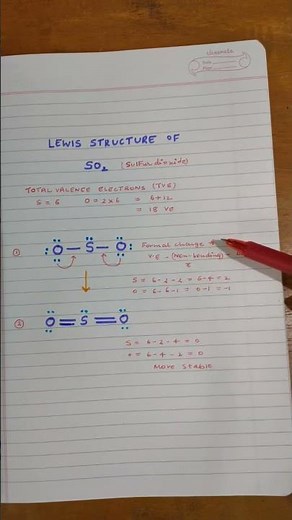 classmate
Date
Page
LEWIS STRUCTURE OF
SO₂ (Sulfur dioxide)
TOTAL VALENCE ELECTRONS (TVE)
S = 6 O = 2 x 6 = 6 + 12
= 18 VE
① :O — S — O: Formal charge =
VE - (Non-bonding) -
S = 6 - 2 - 2 = 6 - 4 = 2
O = 6 - 6 - 1 = 0 - 1 = -1
② O = S = O
S = 6 - 2 - 4 = 0
O = 6 - 4 - 2 = 0
MORE STABLE